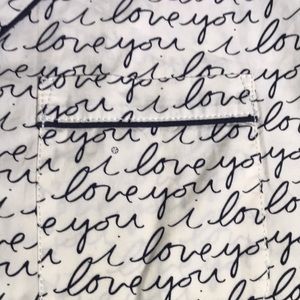 you i love you
i love you i love
love you i love you
you i love you i
you i love you
love you i love
e you i love you
you i love you
i love you i
love you i love